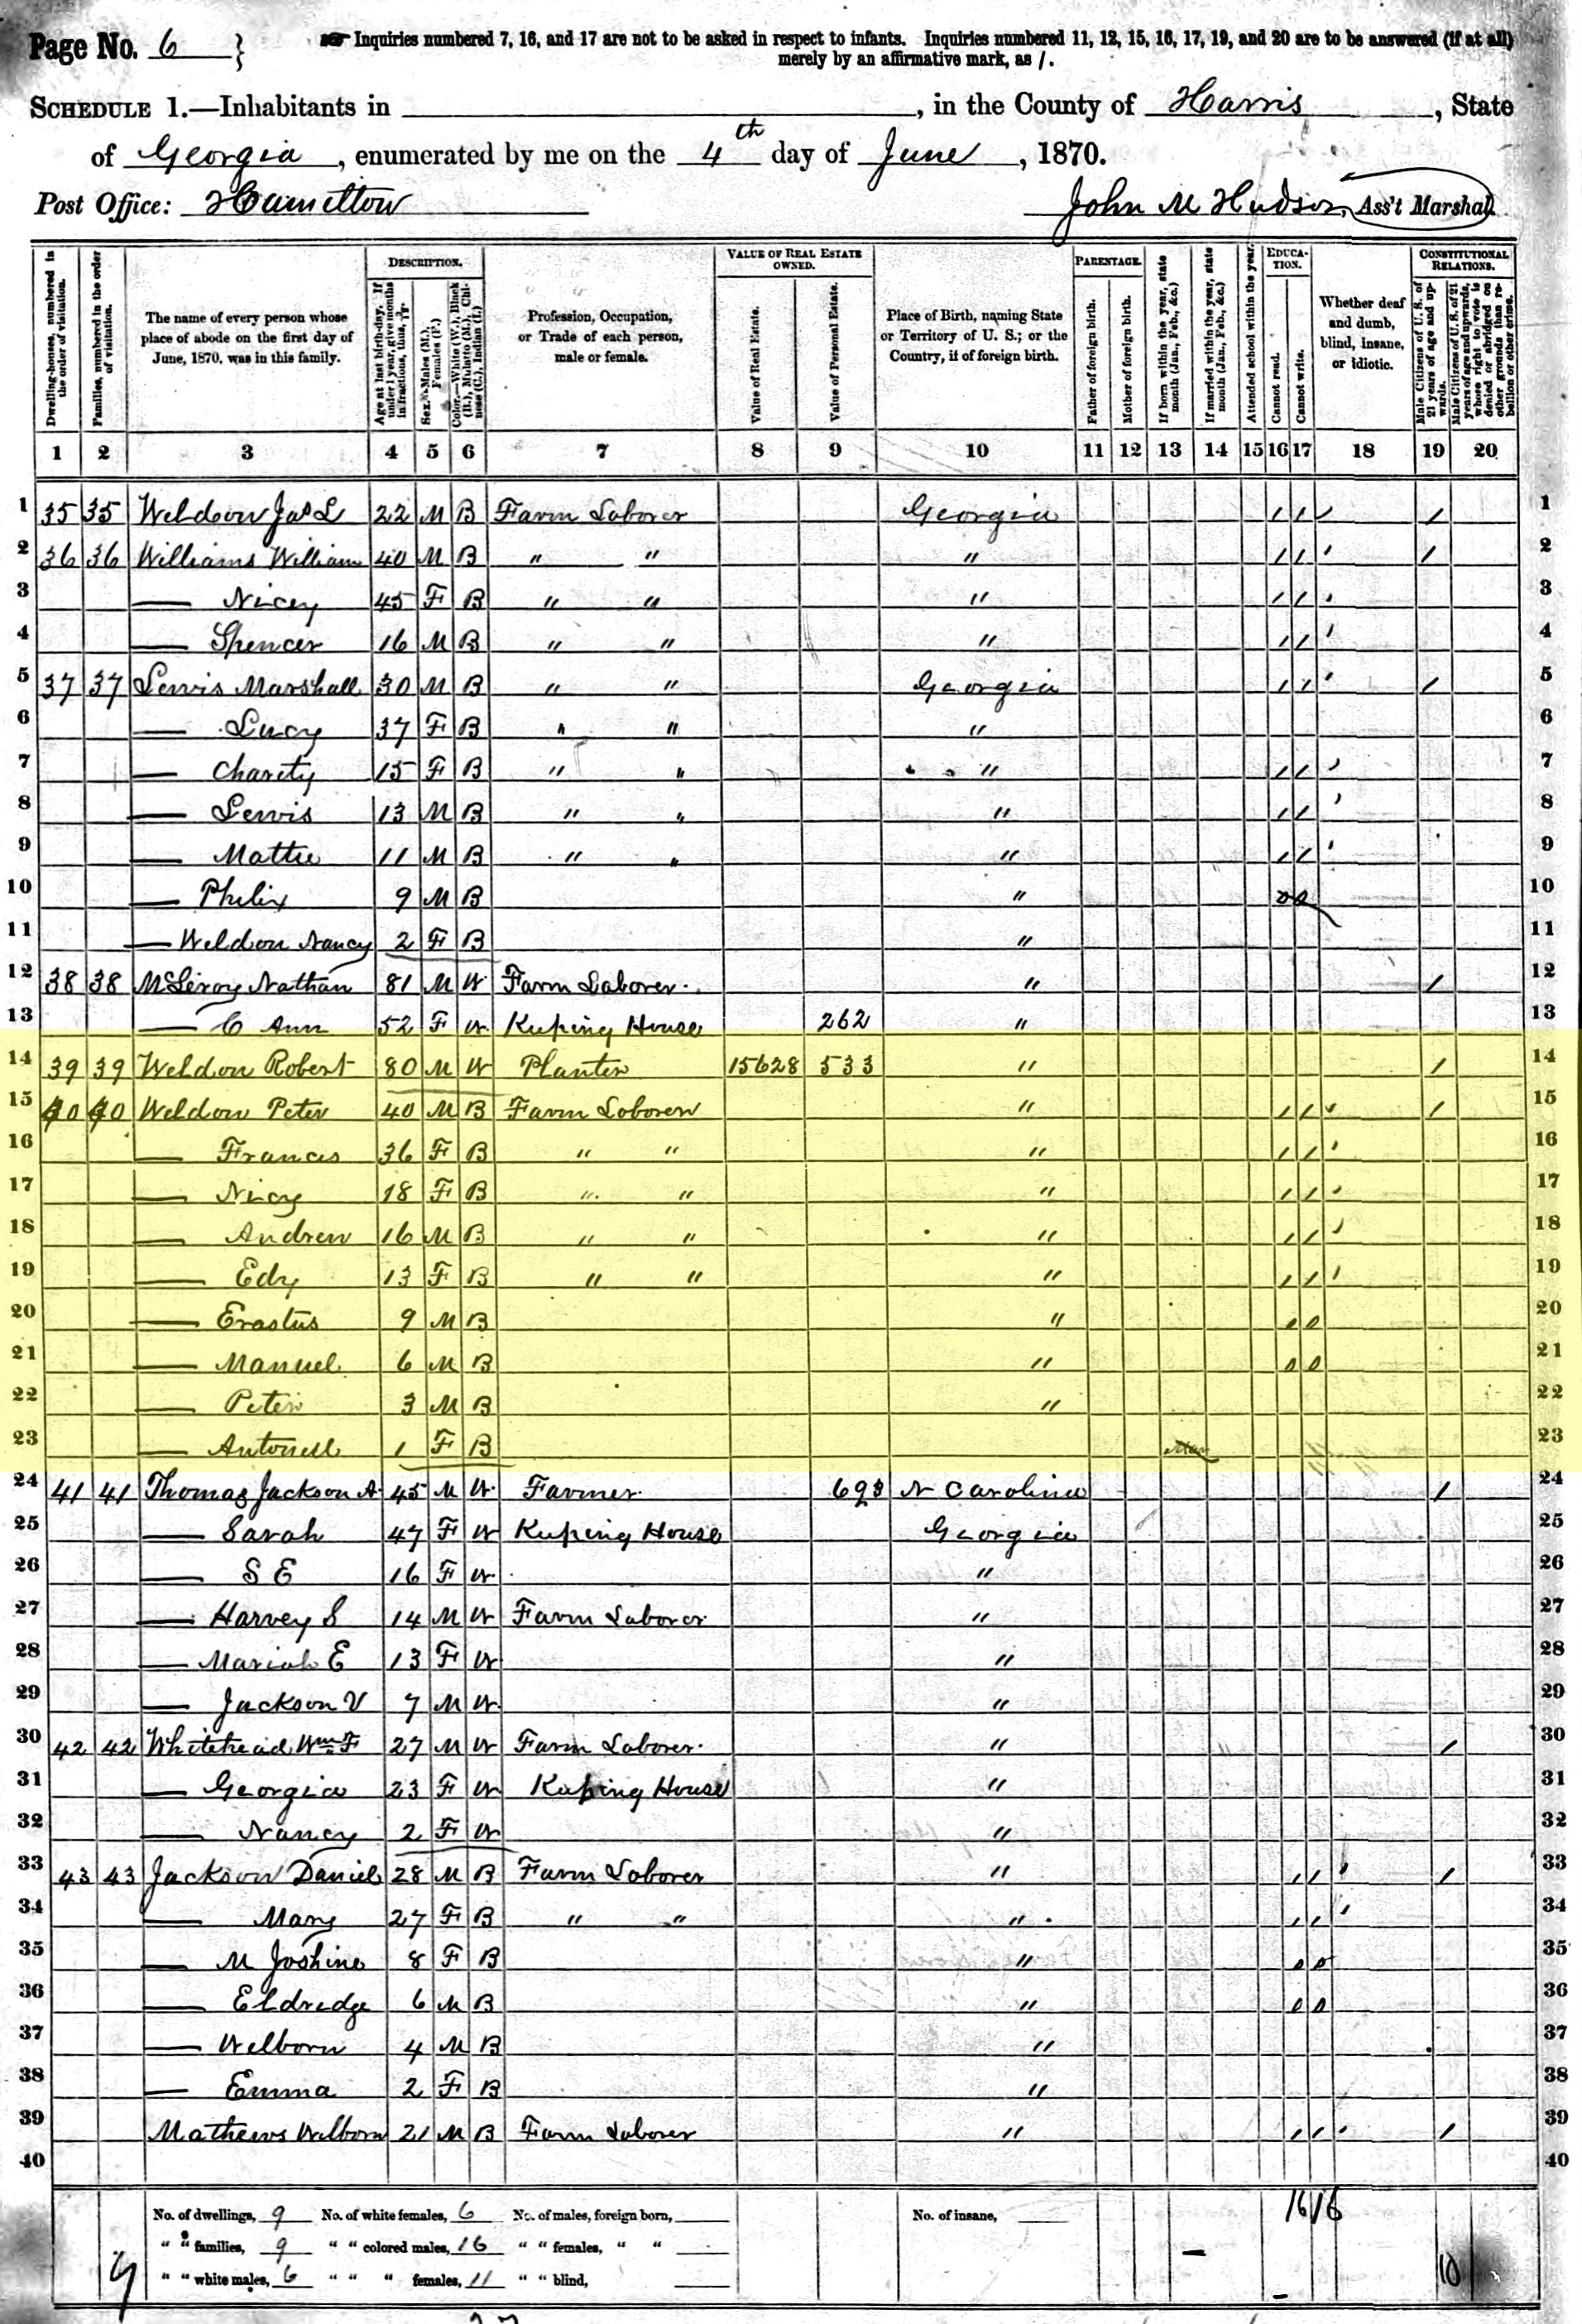 Page No. 6 } ☞ Inquiries numbered 7, 16, and 17 are not to be asked in respect to infants. Inquiries numbered 11, 12, 15, 16, 17, 19, and 20 are to be answered (if at all)
merely by an affirmative mark, as /.
SCHEDULE 1.—Inhabitants in , in the County of Harris, State
of Georgia, enumerated by me on the 4th day of June, 1870.
Post Office: Hamilton John M Hudson, Ass't Marshal.
Dwelling-houses, numbered in the order of visitation.
Families, numbered in the order of visitation.
The name of every person whose place of abode on the first day of June, 1870, was in this family.
DESCRIPTION.
Age at last birth-day. If under 1 year, give months in fractions, thus, 3/12.
Sex.—Males (M.), Females (F.)
Color.—White (W.), Black (B.), Mulatto (M.), Chinese (C.), Indian (I.)
Profession, Occupation, or Trade of each person, male or female.
VALUE OF REAL ESTATE OWNED.
Value of Real Estate.
Value of Personal Estate.
Place of Birth, naming State or Territory of U. S.; or the Country, if of foreign birth.
PARENTAGE.
Father of foreign birth.
Mother of foreign birth.
If born within the year, state month (Jan., Feb., &c.)
If married within the year, state month (Jan., Feb., &c.)
Attended school within the year.
EDUCATION.
Cannot read.
Cannot write.
Whether deaf and dumb, blind, insane, or idiotic.
CONSTITUTIONAL RELATIONS.
Male Citizens of U. S. of 21 years of age and upwards.
Male Citizens of U. S. of 21 years of age and upwards, whose right to vote is denied or abridged on other grounds than rebellion or other crime.
1 2 3 4 5 6 7 8 9 10 11 12 13 14 15 16 17 18 19 20
1 35 35 Weldon Jas L 22 M B Farm Laborer Georgia / / / / 1
2 36 36 Williams William 40 M B " " " / / ' / 2
3 — Nicey 45 F B " " " / / ' 3
4 — Spencer 16 M B " " " / / ' 4
5 37 37 Lewis Marshall 30 M B " " Georgia / / ' / 5
6 — Lucy 37 F B " " " 6
7 — Charity 15 F B " " " / / ' 7
8 — Lewis 13 M B " " " / / ' 8
9 — Mattie 11 M B " " " / / ' 9
10 — Philix 9 M B " 0 0 10
11 — Weldon Nancy 2 F B " 11
12 38 38 McLeroy Nathan 81 M W Farm Laborer " / 12
13 — C Ann 52 F W Keeping House 262 " 13
14 39 39 Weldon Robert 80 M W Planter 15628 533 " / 14
15 40 40 Weldon Peter 40 M B Farm Laborer " / / ' / 15
16 — Frances 36 F B " " " / / ' 16
17 — Nicy 18 F B " " " / / ' 17
18 — Andrew 16 M B " " " / / ' 18
19 — Edy 13 F B " " " / / ' 19
20 — Erastus 9 M B " 0 0 20
21 — Manuel 6 M B " 0 0 21
22 — Peter 3 M B " 22
23 — 1 F B 23
24 41 41 Thomas Jackson A 45 M W Farmer 693 N Carolina / 24
25 — Sarah 47 F W Keeping House Georgia 25
26 — S E 16 F W " 26
27 — Harvey S 14 M W Farm Laborer " 27
28 — Mariah E 13 F W " 28
29 — Jackson V 7 M W " 29
30 42 42 Whitehead Wm F 27 M W Farm Laborer " / 30
31 — Georgia 23 F W Keeping House " 31
32 — Nancy 2 F W " 32
33 43 43 Jackson Daniel 28 M B Farm Laborer " / / ' / 33
34 — Mary 27 F B " " " / / ' 34
35 — M Joshine 8 F B " 0 0 35
36 — Eldredge 6 M B " 0 0 36
37 — Welborn 4 M B " 37
38 — Emma 2 F B " 38
39 Mathews Welborn 21 M B Farm Laborer " / / ' / 39
40 40
No. of dwellings, 9 No. of white females, 6 No. of males, foreign born, No. of insane, 16 16
" " families, 9 " " colored males, 16 " " females, " " — 10
" " white males, 6 " " " females, 11 " " blind,